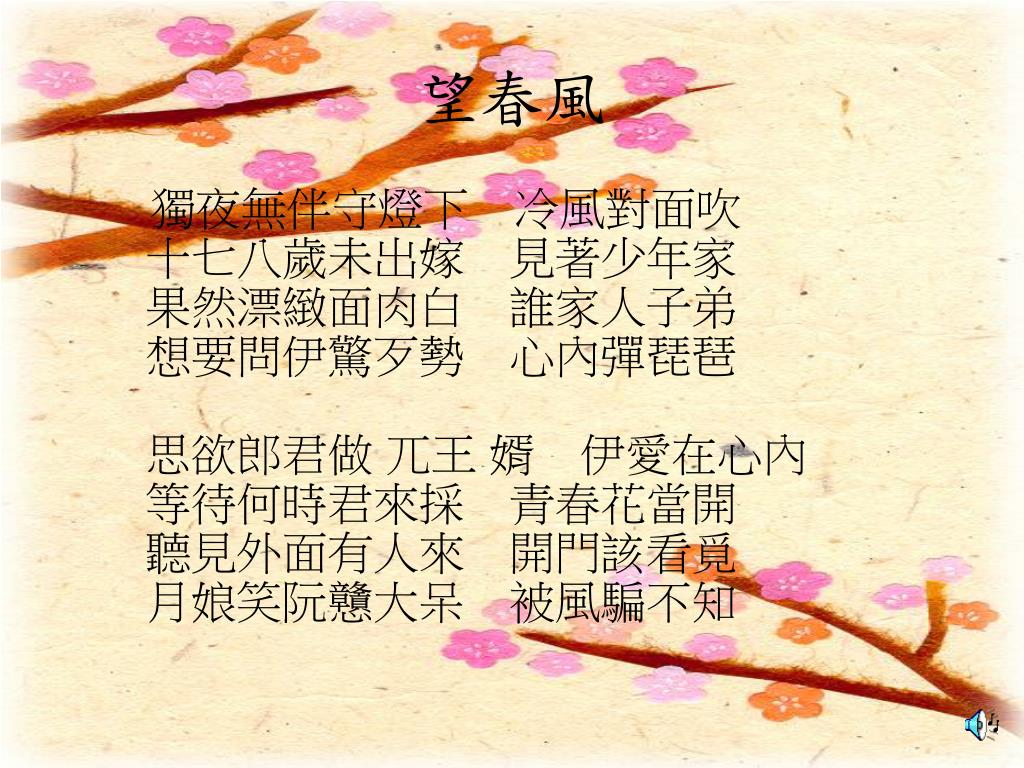 望春風
獨夜無伴守燈下 冷風對面吹
十七八歲未出嫁 見著少年家
果然漂緻面肉白 誰家人子弟
想要問伊驚歹勢 心內彈琵琶
思欲郎君做 兀王 婿 伊愛在心內
等待何時君來採 青春花當開
聽見外面有人來 開門該看覓
月娘笑阮戇大呆 被風騙不知